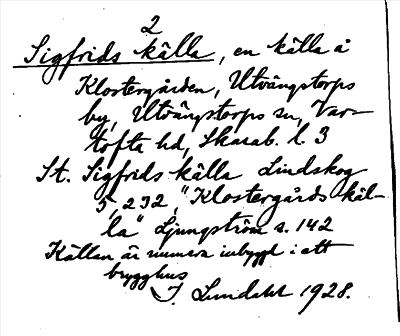 2
Sigfrids källa, en källa å
Klostergården, Utvängstorps
by, Utvängstorps sn, Var-
tofta hd, Skarab. l. 3
St. Sigfrids källa Lindskog
5, 232, "Klostergårds käl-
la" Ljungström s. 142
Källan är numera inbyggd i ett
brygghus
J. Lundahl 1928.